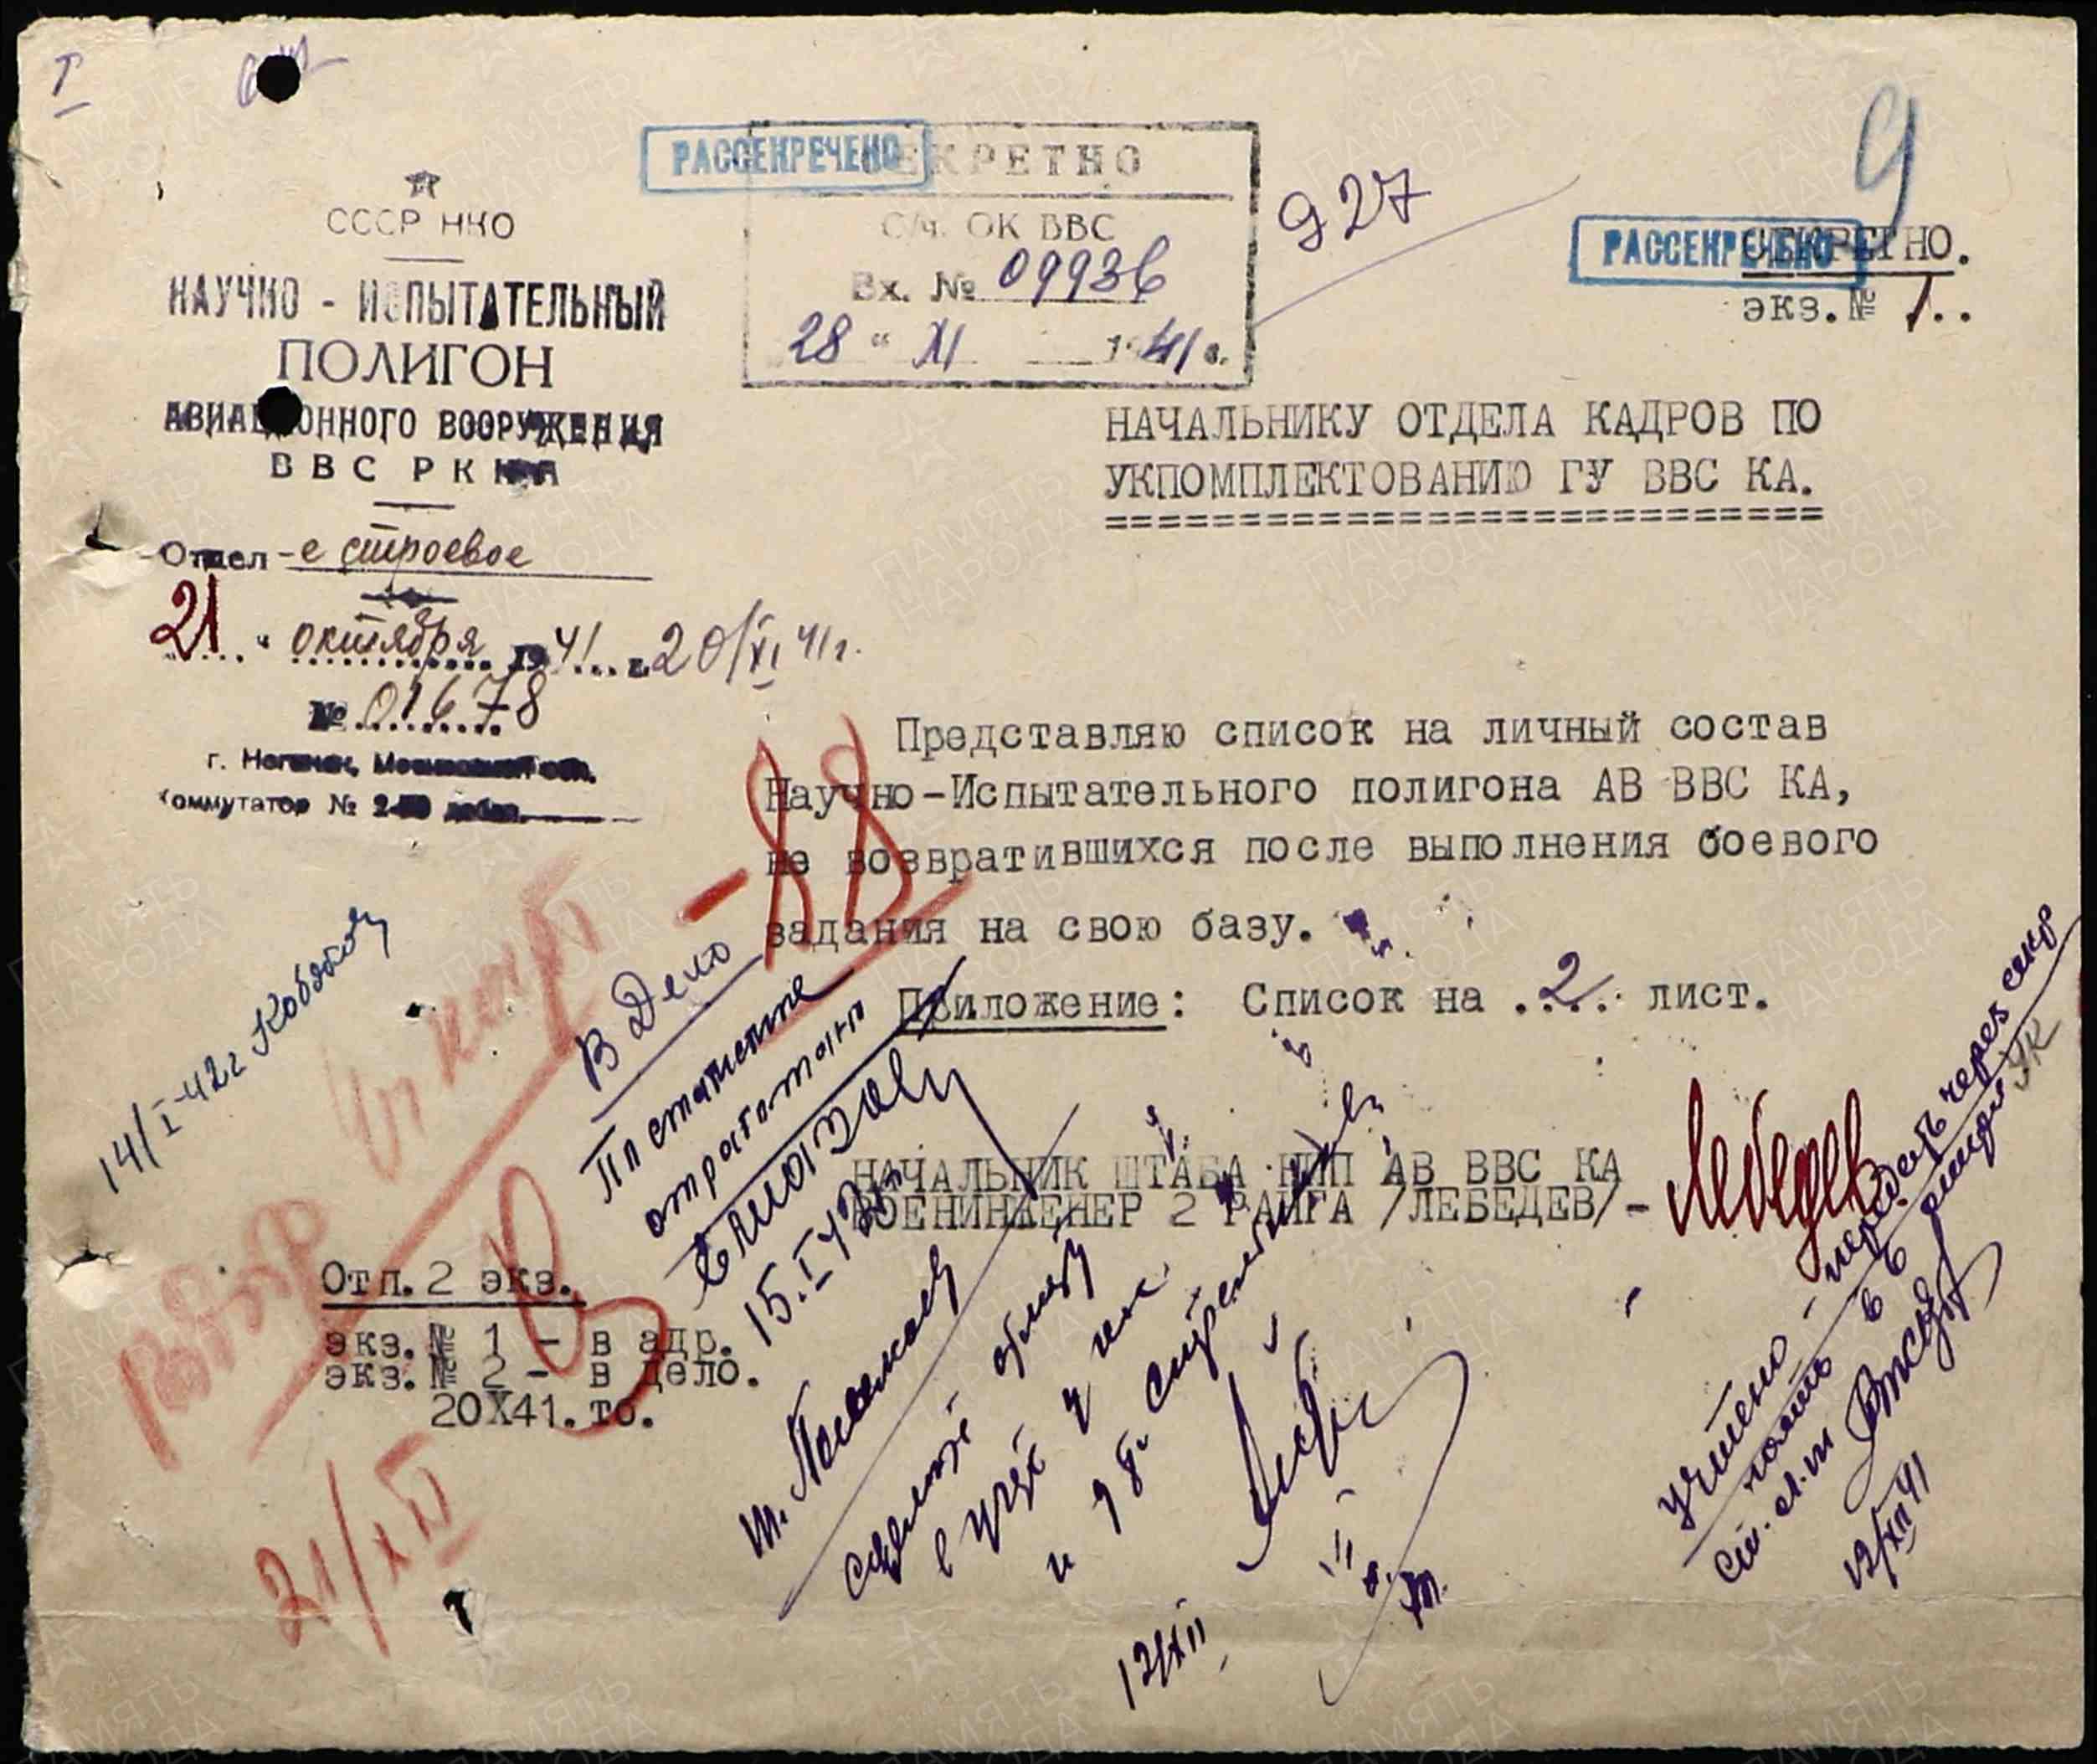 РАССЕКРЕЧЕНО
СЕКРЕТНО
С/ч. ОК ВВС
Вх. № 09936
28 " XI 1941 г.
927
9
РАССЕКРЕЧЕНО
СЕКРЕТНО.
экз.№ 1..
СССР НКО
НАУЧНО - ИСПЫТАТЕЛЬНЫЙ
ПОЛИГОН
АВИАЦИОННОГО ВООРУЖЕНИЯ
ВВС РККА
Отдел-е строевое
21 " октября 1941 г. 20/XI 41г.
№ 01678
г. Ногинск, Московской обл.
Коммутатор №
НАЧАЛЬНИКУ ОТДЕЛА КАДРОВ ПО
УКПОМПЛЕКТОВАНИЮ ГУ ВВС КА.
Представляю список на личный состав
Научно-Испытательного полигона АВ ВВС КА,
не возвратившихся после выполнения боевого
задания на свою базу.
Приложение: Список на .2.. лист.
НАЧАЛЬНИК ШТАБА НИП АВ ВВС КА
ВОЕНИНЖЕНЕР 2 РАНГА /ЛЕБЕДЕВ/- Лебедев
Отп.2 экз.
экз.№ 1 - в адр.
экз.№ 2 - в дело.
20X41.то.
-88
В Дело
По статистике
отработано
15.I 42г
14/I-42г
21/XI
12/XII
Учтено - передать через секр
12/XII 41
ПАМЯТЬ
НАРОДА